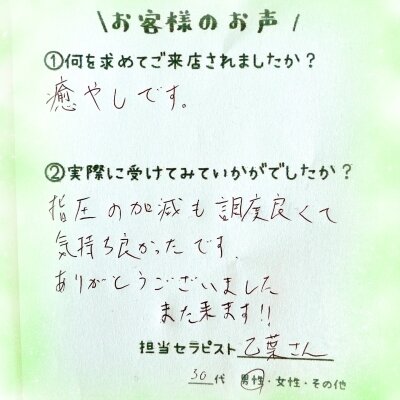 \お客様のお声/
①何を求めてご来店されましたか？
癒やしです。
②実際に受けてみていかがでしたか？
指圧の加減も調度良くて
気持ち良かったです.
ありがとうございました
また来ます!!
担当セラピスト乙葉さん
30代 男性・女性・その他